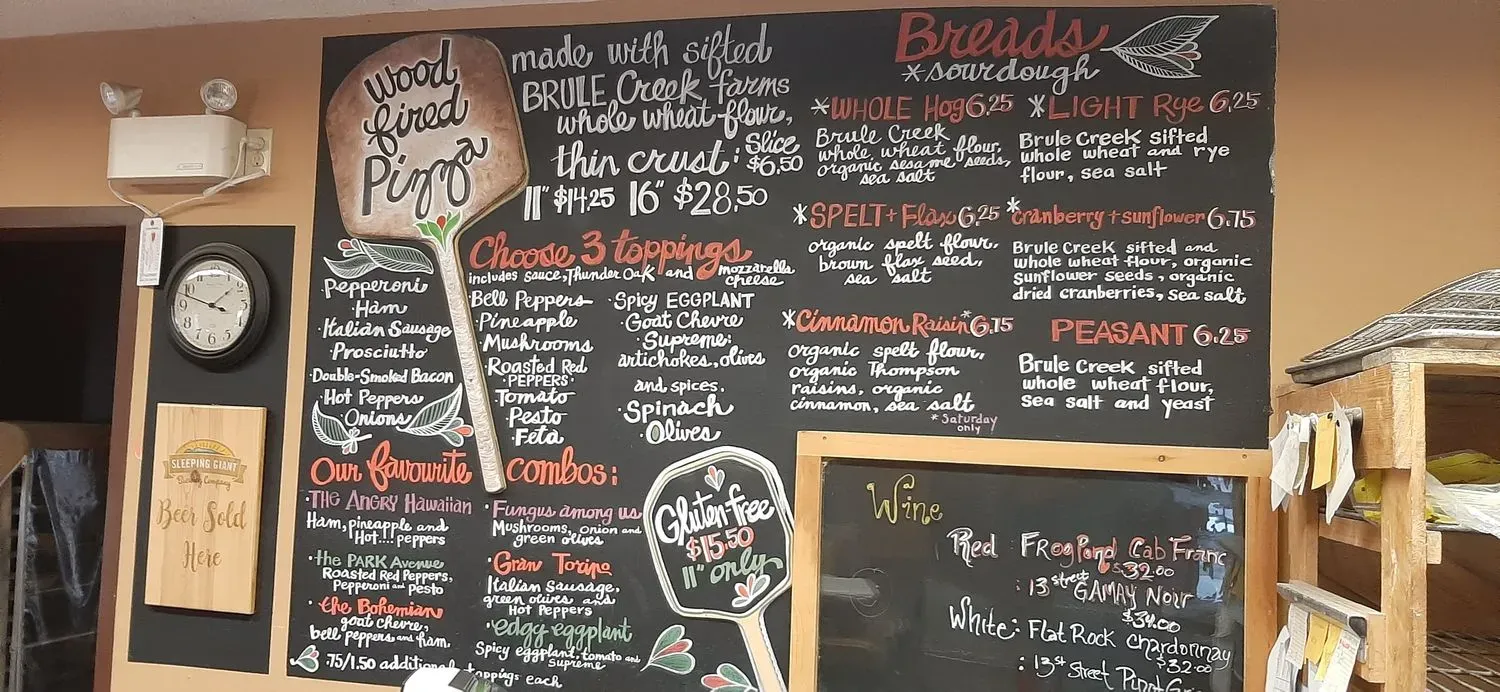 wood
fired
Pizza
made with sifted
BRULE Creek farms
whole wheat flour,
thin crust: Slice $6.50
11" $14.25 16" $28.50
Choose 3 toppings
includes sauce, Thunder Oak and mozzarella cheese
pepperoni
·Ham
·Italian Sausage
Prosciutto
·Double-Smoked Bacon
·Hot Peppers
·Onions
·Bell Peppers
·Pineapple
·Mushrooms
·Roasted Red
·PEPPERS·
·Tomato
·Pesto
·Feta
·Spicy EGGPLANT
·Goat Chevre
·Supreme:
artichokes, olives
and spices.
·Spinach
·Olives
Our favourite combos:
·THE ANGRY Hawaiian
Ham, pineapple and
Hot.... peppers
·the PARK Avenue
Roasted Red Peppers,
Pepperoni and Pesto
·the Bohemian
goat chevre,
bell peppers and ham.
·.75/1.50 additional toppings each
·Fungus among us
Mushrooms, onion and
green olives
·Gran Torino
Italian Sausage,
green olives and
Hot Peppers
·edgy eggplant
Spicy eggplant, tomato and
Supreme
Gluten-free
$15.50
11" only
Breads
*sourdough
*WHOLE Hog 6.25
Brule Creek
whole wheat flour,
organic sesame seeds,
sea salt
*LIGHT Rye 6.25
Brule Creek sifted
whole wheat and rye
flour, sea salt
*SPELT + Flax 6.25
organic spelt flour,
brown flax seed,
sea salt
*cranberry + sunflower 6.75
Brule Creek sifted and
whole wheat flour, organic
sunflower seeds, organic
dried cranberries, sea salt
*Cinnamon Raisin* 6.75
organic spelt flour,
organic Thompson
raisins, organic
cinnamon, sea salt
*Saturday
only
PEASANT 6.25
Brule Creek sifted
whole wheat flour,
sea salt and yeast
Wine
Red: Frog Pond Cab Franc
$32.00
: 13th street GAMAY Noir
$34.00
White: Flat Rock chardonnay
$32.00
: 13th Street
SLEEPING GIANT
Brewing Company
Beer Sold
Here